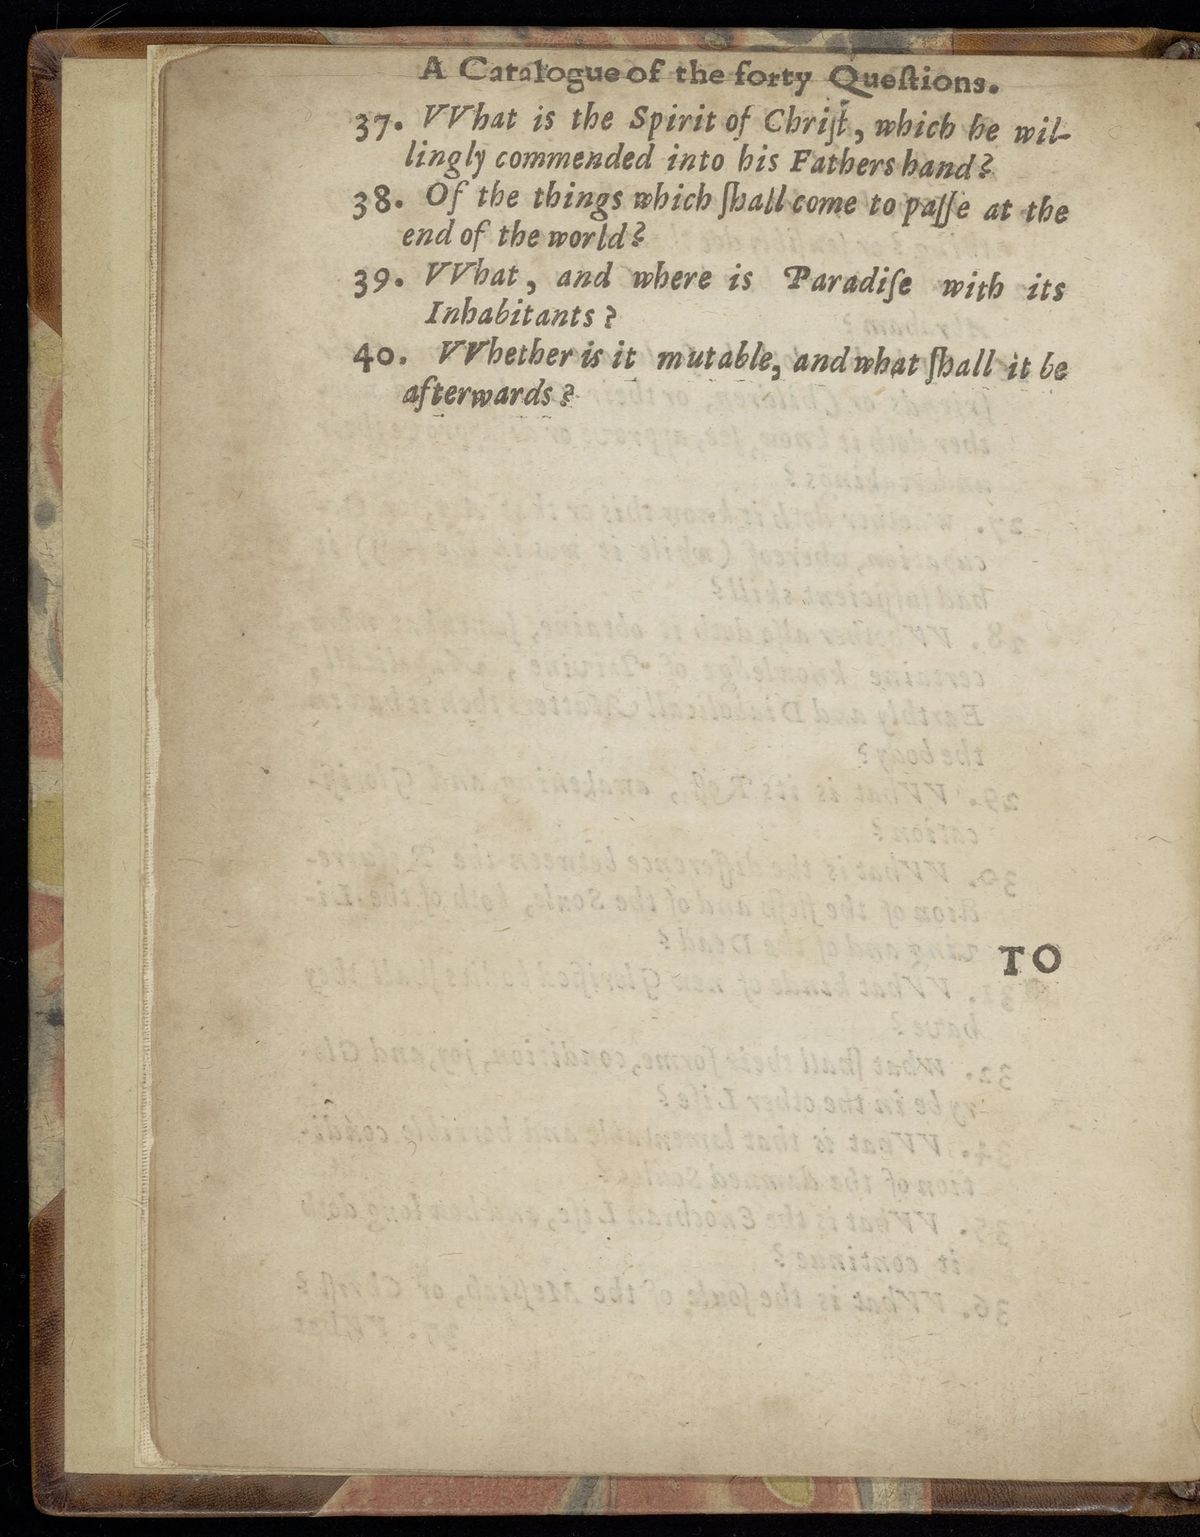 A Catalogue of the forty Queſtions.
37. VVhat is the Spirit of Chriſt, which he wil-
lingly commended into his Fathers hand?
38. Of the things which ſhall come to paſſe at the
end of the world?
39. VVhat, and where is Paradiſe with its
Inhabitants?
40. VVhether is it mutable, and what ſhall it be
afterwards?
TO